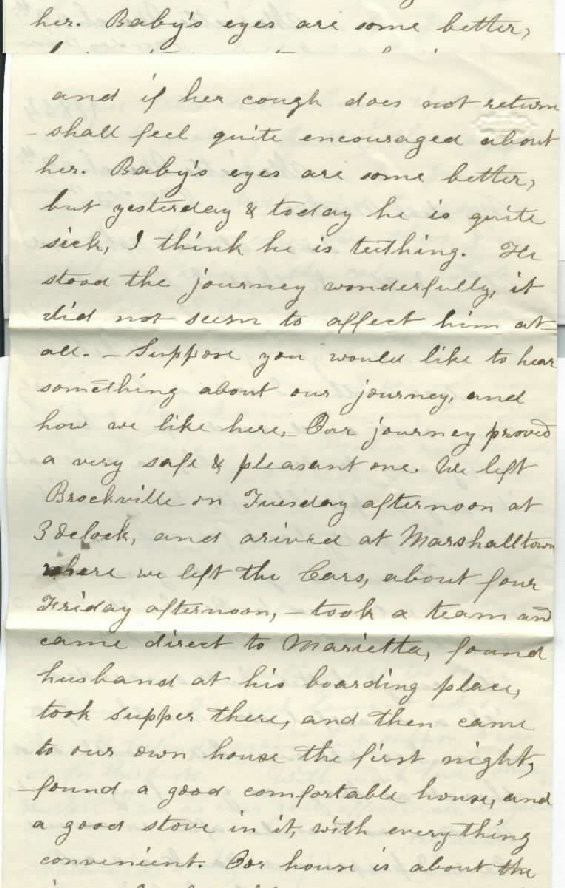 her. Baby's eyes are some better,
and if her cough does not return
- shall feel quite encouraged about
her. Baby's eyes are some better,
but yesterday & today he is quite
sick, I think he is tuthing. He
stood the journey wonderfully, it
did not seem to affect him at
all. - Suppose you would like to hear
something about our journey, and
how we like here, - Our journey proved
a very safe & pleasant one. We left
Brockville on Tuesday afternoon at
3 Oclock, and arived at Marshalltown
where we left the Cars, about four
Friday afternoon, - took a team and
came direct to Marietta, found
husband at his boarding place,
took supper there, and then came
to our own house the first night,
found a good comfortable house, and
a good stove in it, with everything
convenient. Our house is about the